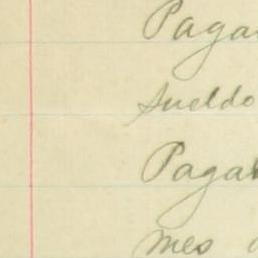 Paga
sueldo
Paga
mes